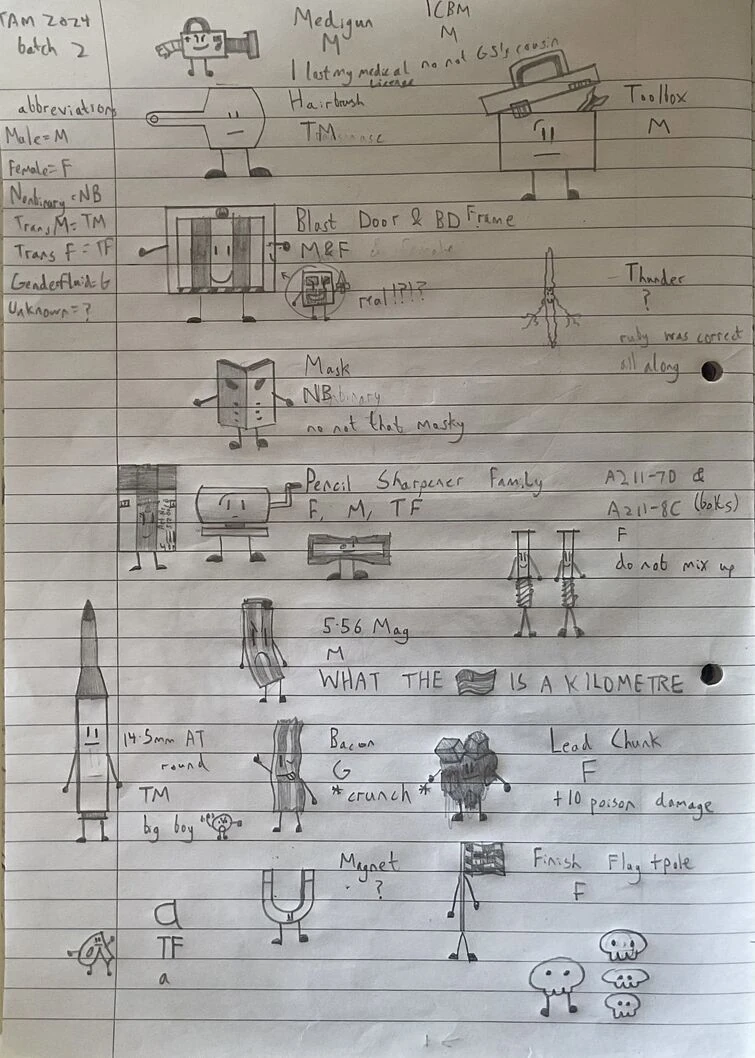 TAM 2024
batch 2
abbreviations
Male = M
Female = F
Nonbinary = NB
Trans M = TM
Trans F = TF
Genderfluid = G
Unknown = ?
Medigun
M
I lost my medical license
ICBM
M
no not GS's cousin
Hairbrush
TM
Toolbox
M
Blast Door & BD Frame
M&F
real!!?!?
Thunder
?
ruby was correct
all along
Mask
NB
no not that masky
Pencil Sharpener Family
F, M, TF
A211-7D &
A211-8C (bolts)
F
do not mix up
5.56 Mag
M
WHAT THE IS A KILOMETRE
14.5mm AT
round
TM
big boy
Bacon
G
*crunch*
Lead Chunk
F
+10 poison damage
Magnet
?
Finish Flag + pole
F
a
TF
a